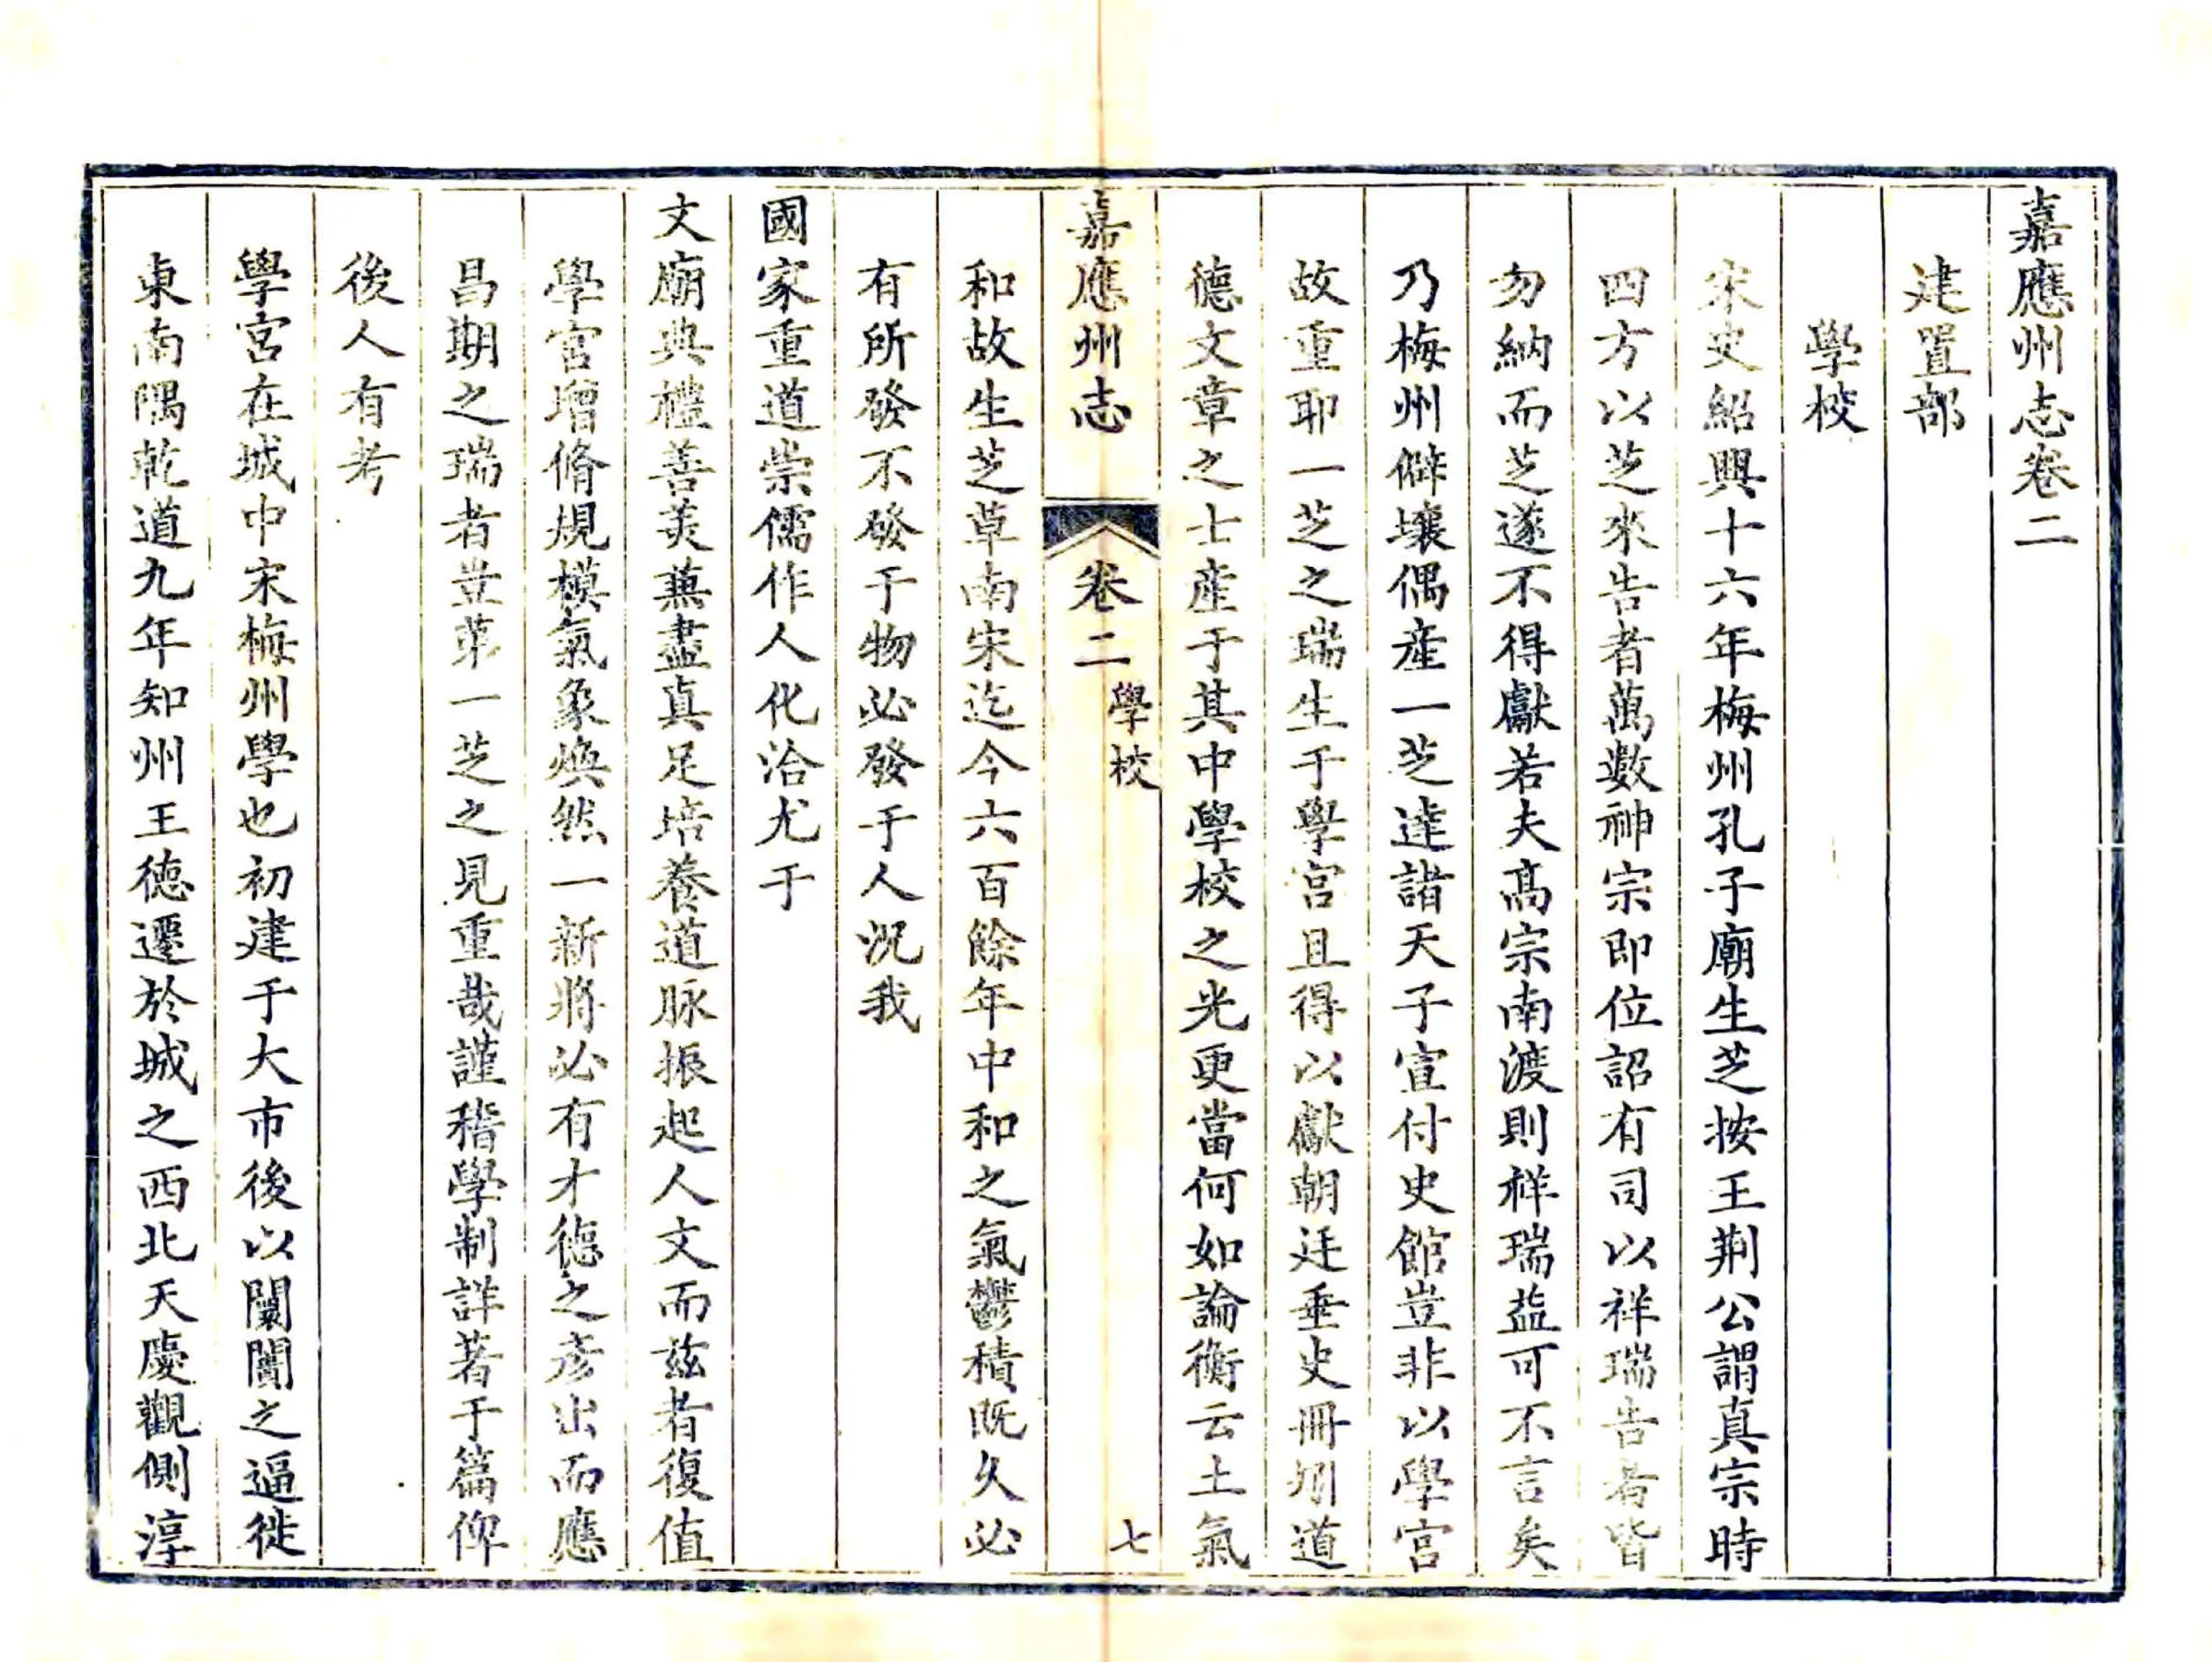 嘉應州志卷二
建置部
學校
宋史紹興十六年梅州孔子廟生芝按王荆公謂真宗時
四方以芝來告者萬數神宗即位詔有司以祥瑞告者皆
勿納而芝遂不得獻若夫髙宗南渡則祥瑞益可不言矣
乃梅州僻壤偶産一芝達諸天子宣付史館豈非以學宮
故重耶一芝之瑞生于學宮且得以獻朝廷垂史冊矧道
德文章之士産于其中學校之光更當何如論衡云土氣
嘉應州志
卷二
學校
七
和故生芝草南宋迄今六百餘年中和之氣鬱積既久必
有所發不發于物必發于人況我
國家重道崇儒作人化洽尤于
文廟典禮善美蕪盡真足培養道脉振起人文而兹者復值
學宮增脩規模氣象煥然一新將必有才德之彦出而應
昌期之瑞者豈苐一芝之見重哉謹稽學制詳著于篇俾
後人有考
學宮在城中宋梅州學也初建于大市後以闤闠之逼徙
東南隅乾道九年知州王德遷於城之西北天慶觀側淳